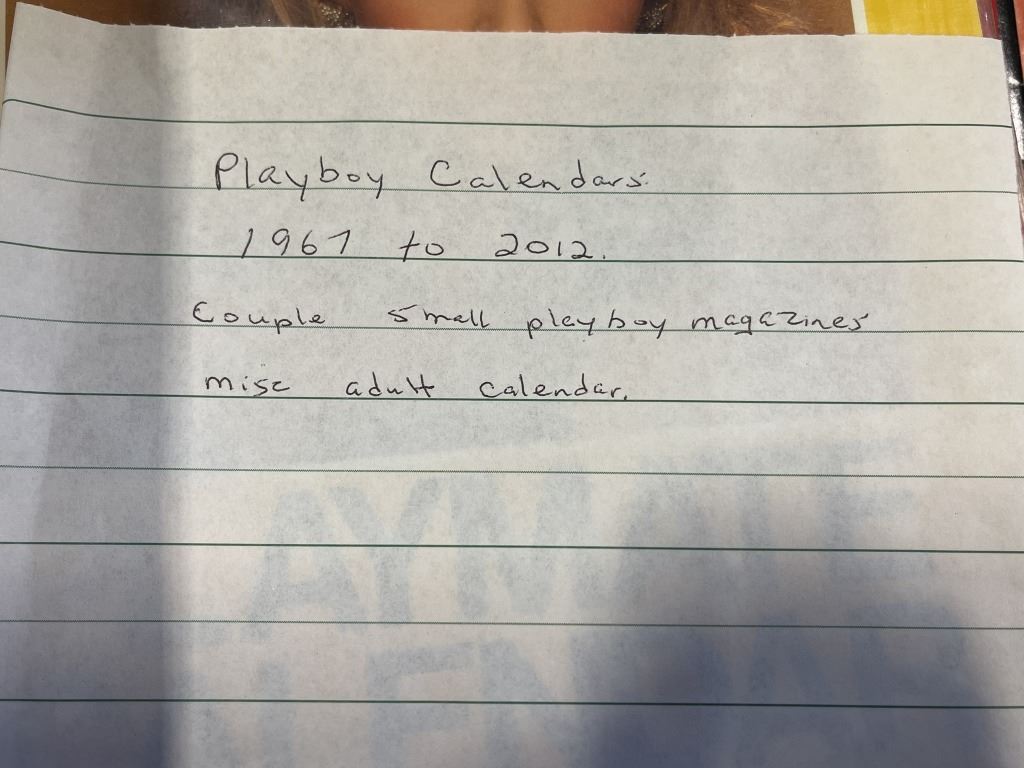 Playboy Calendars.
1967 to 2012.
Couple small playboy magazines
misc adult calendar.
AYMATE
LENDAR